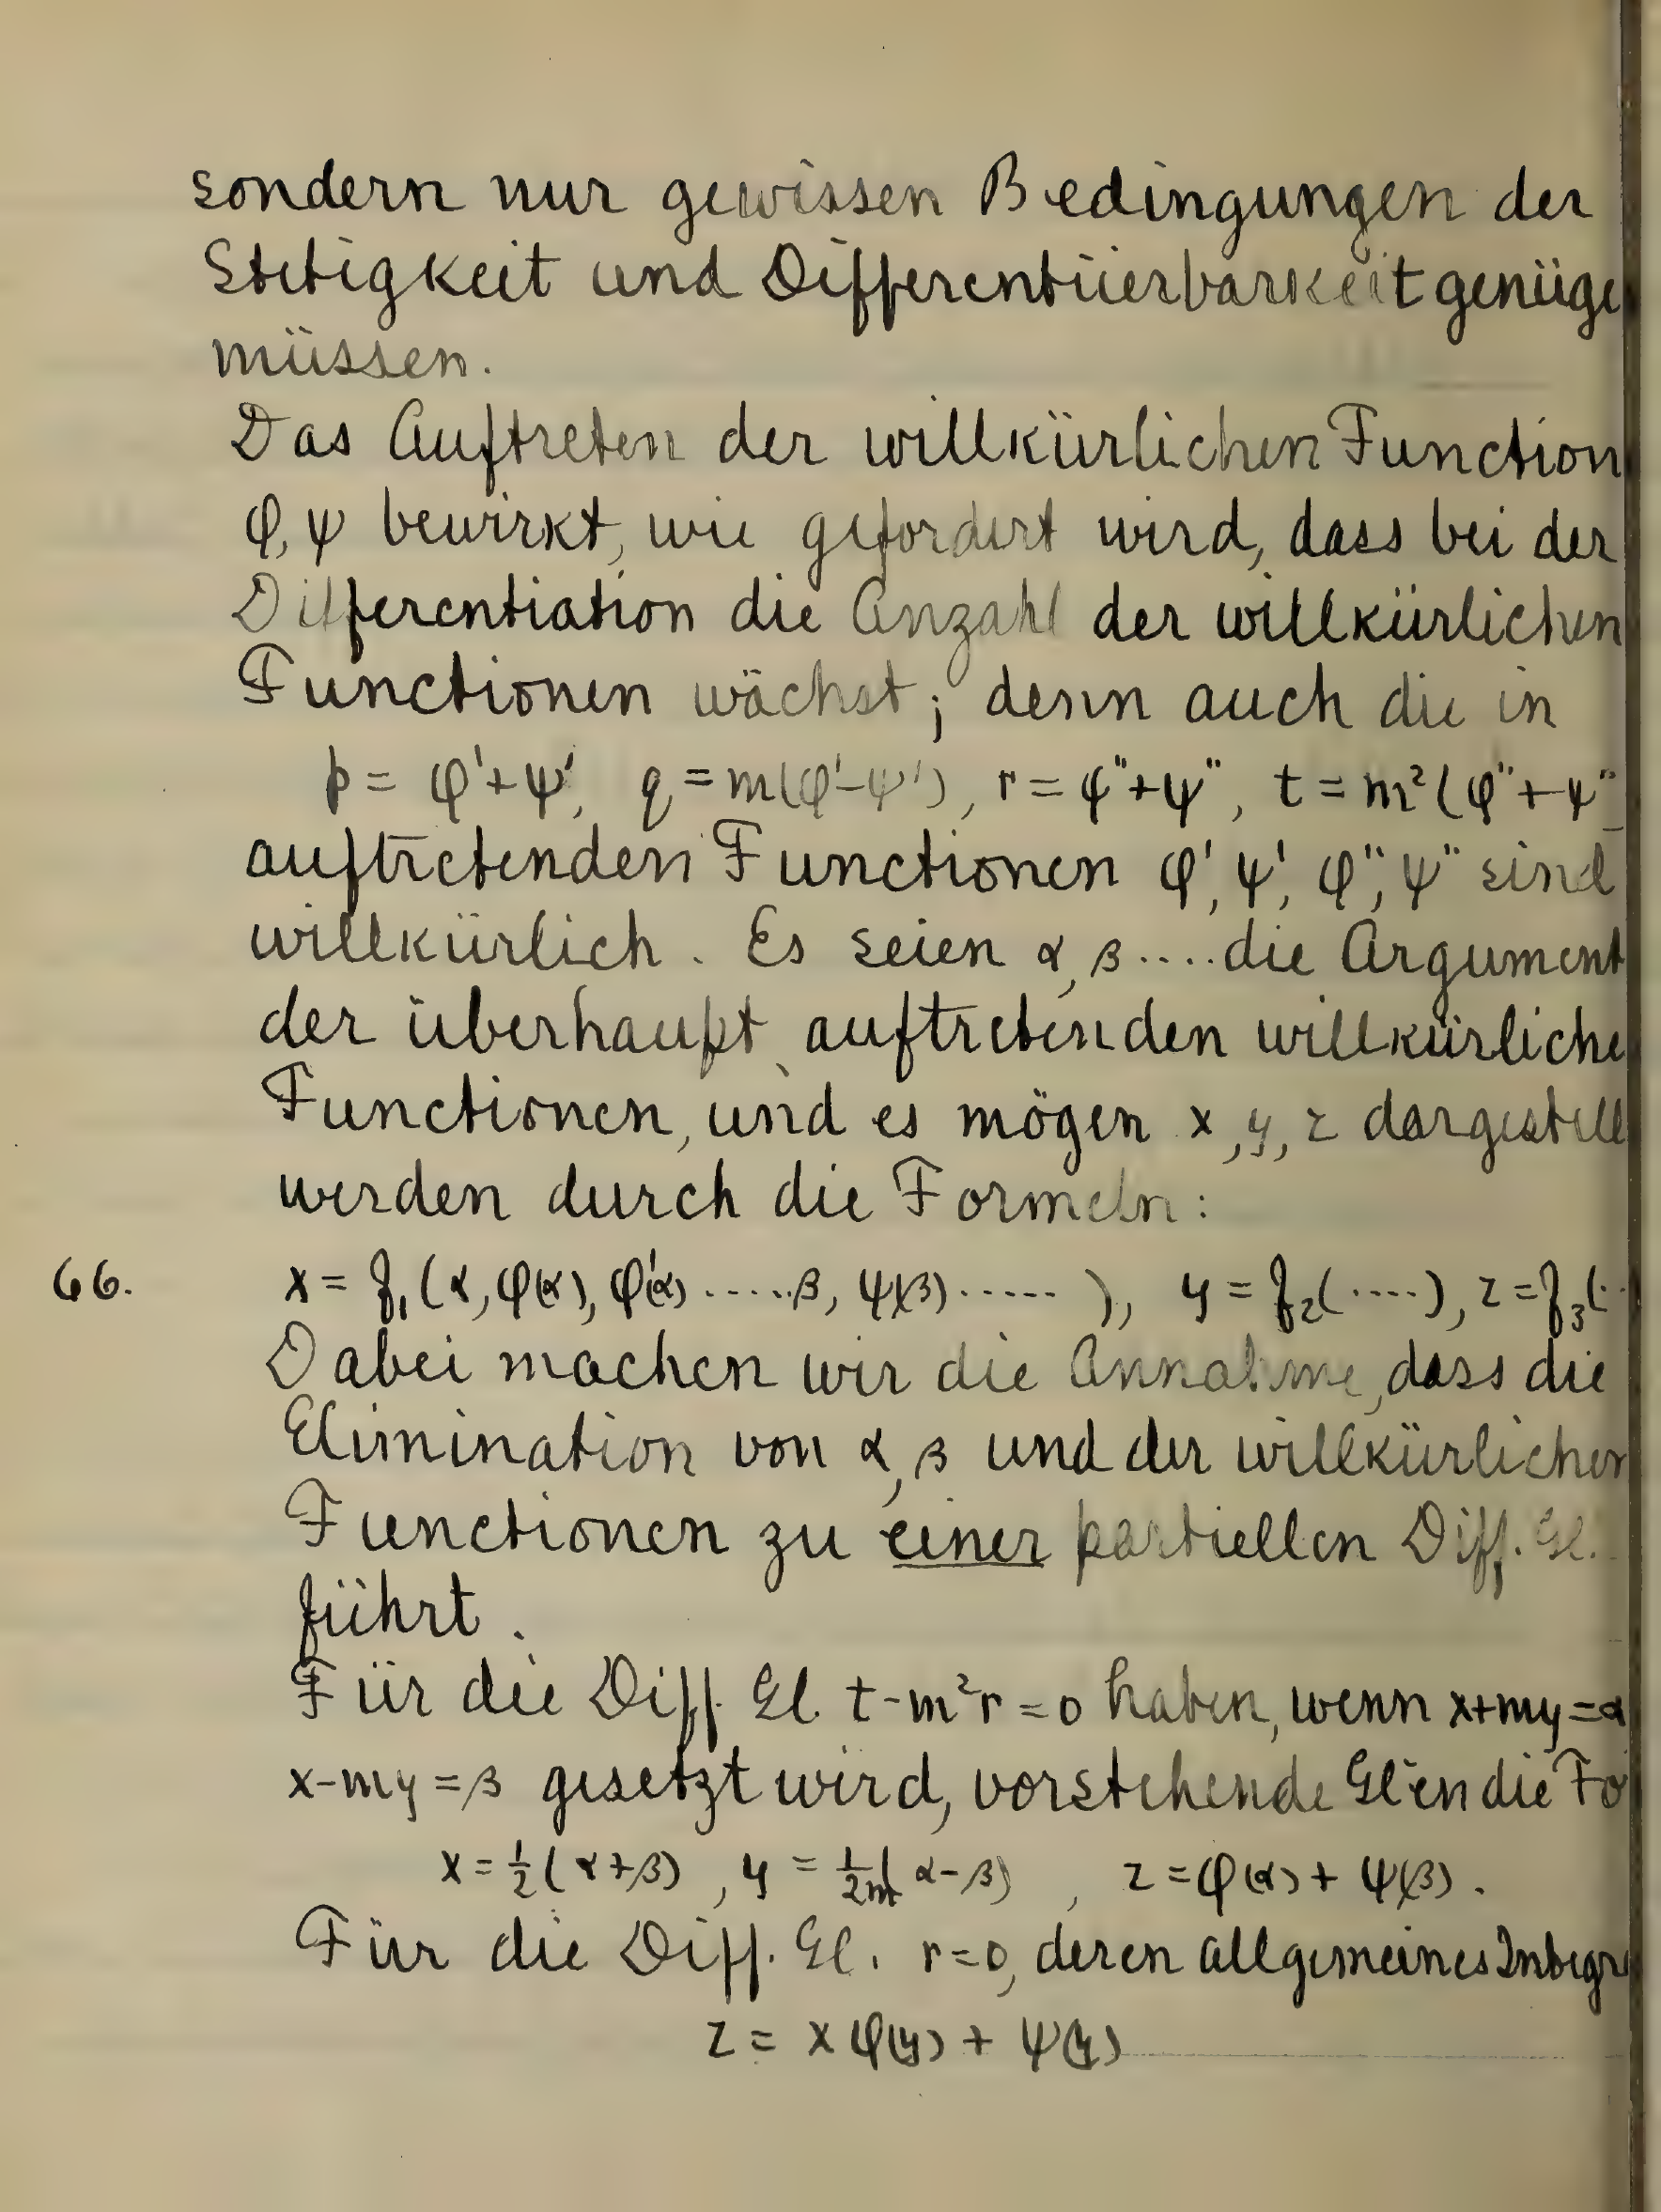 sondern nur gewissen Bedingungen der
Stetigkeit und Differentiierbarkeit genüge
müssen.
Das Auftreten der willkürlichen Function
φ, ψ bewirkt, wie gefordert wird, dass bei der
Differentiation die Anzahl der willkürlichen
Functionen wächst; denn auch die in
p = φ'+ψ', q = m(φ'-ψ'), r = φ''+ψ'', t = m²(φ''+ψ''
auftretenden Functionen φ', ψ', φ'', ψ'' sind
willkürlich. Es seien α, β.... die Argument
der überhaupt auftretenden willkürliche
Functionen, und es mögen x, y, z dargestell
werden durch die Formeln:
66. x = f₁(α, φ(α), φ'(α) ..... β, ψ(β) ..... ), y = f₂(....), z = f₃(..
Dabei machen wir die Annahme, dass die
Elimination von α, β und der willkürlichen
Functionen zu einer partiellen Diff. Gl.
führt.
Für die Diff. Gl. t-m²r=0 haben, wenn x+my=α
x-my=β gesetzt wird, vorstehende Gl'en die Fo
x = ½(α+β), y = 1/2m(α-β), z = φ(α) + ψ(β).
Für die Diff. Gl. r=0, deren allgemeines Integr
z = xφ(y) + ψ(y)